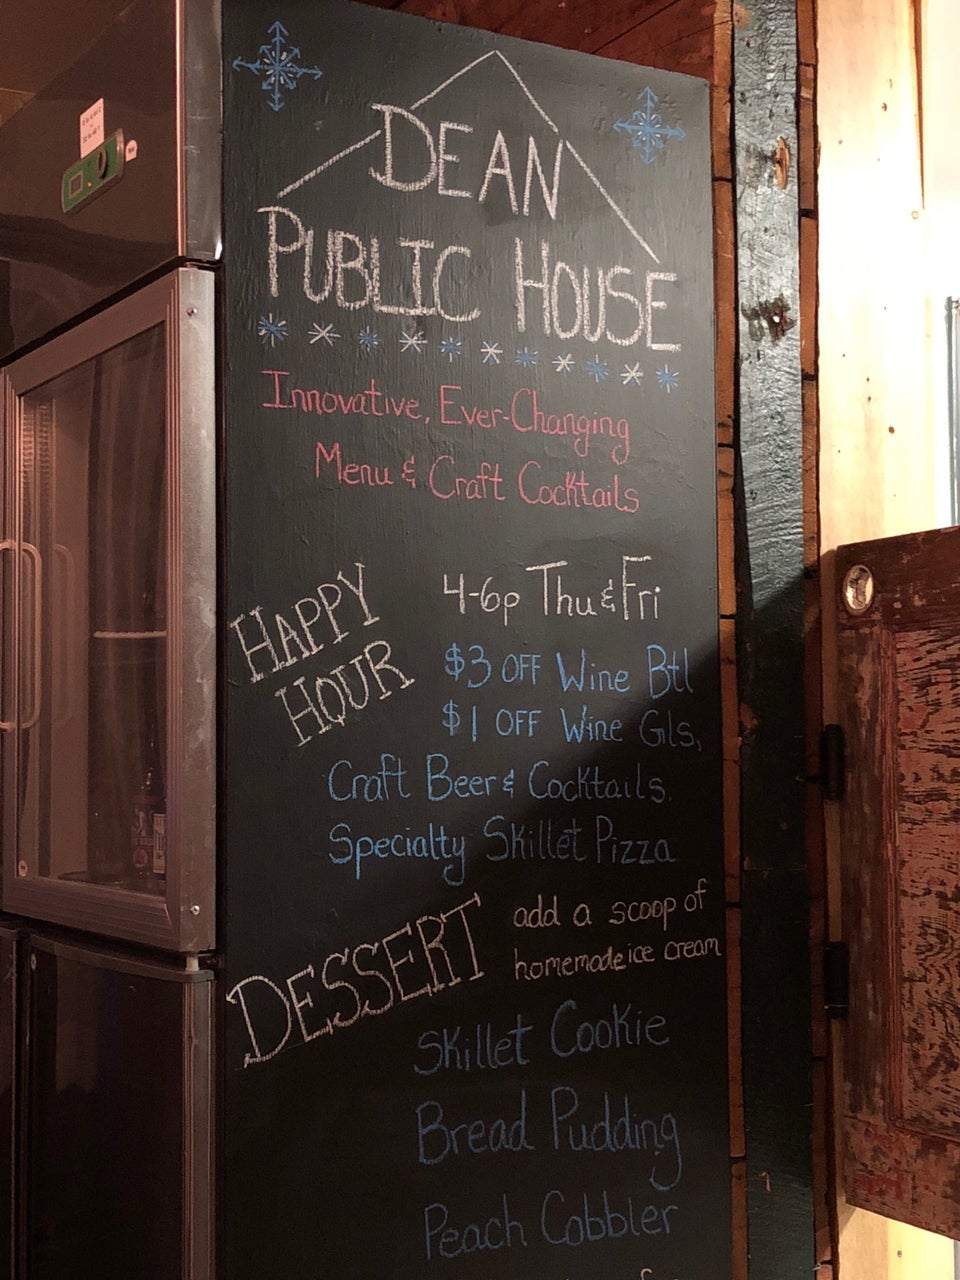 DEAN
PUBLIC HOUSE
Innovative, Ever-Changing
Menu & Craft Cocktails
HAPPY
HOUR
4-6p Thu & Fri
$3 OFF Wine Btl
$1 OFF Wine Gls,
Craft Beer & Cocktails.
Specialty Skillet Pizza
DESSERT
add a scoop of
homemade ice cream
Skillet Cookie
Bread Pudding
Peach Cobbler